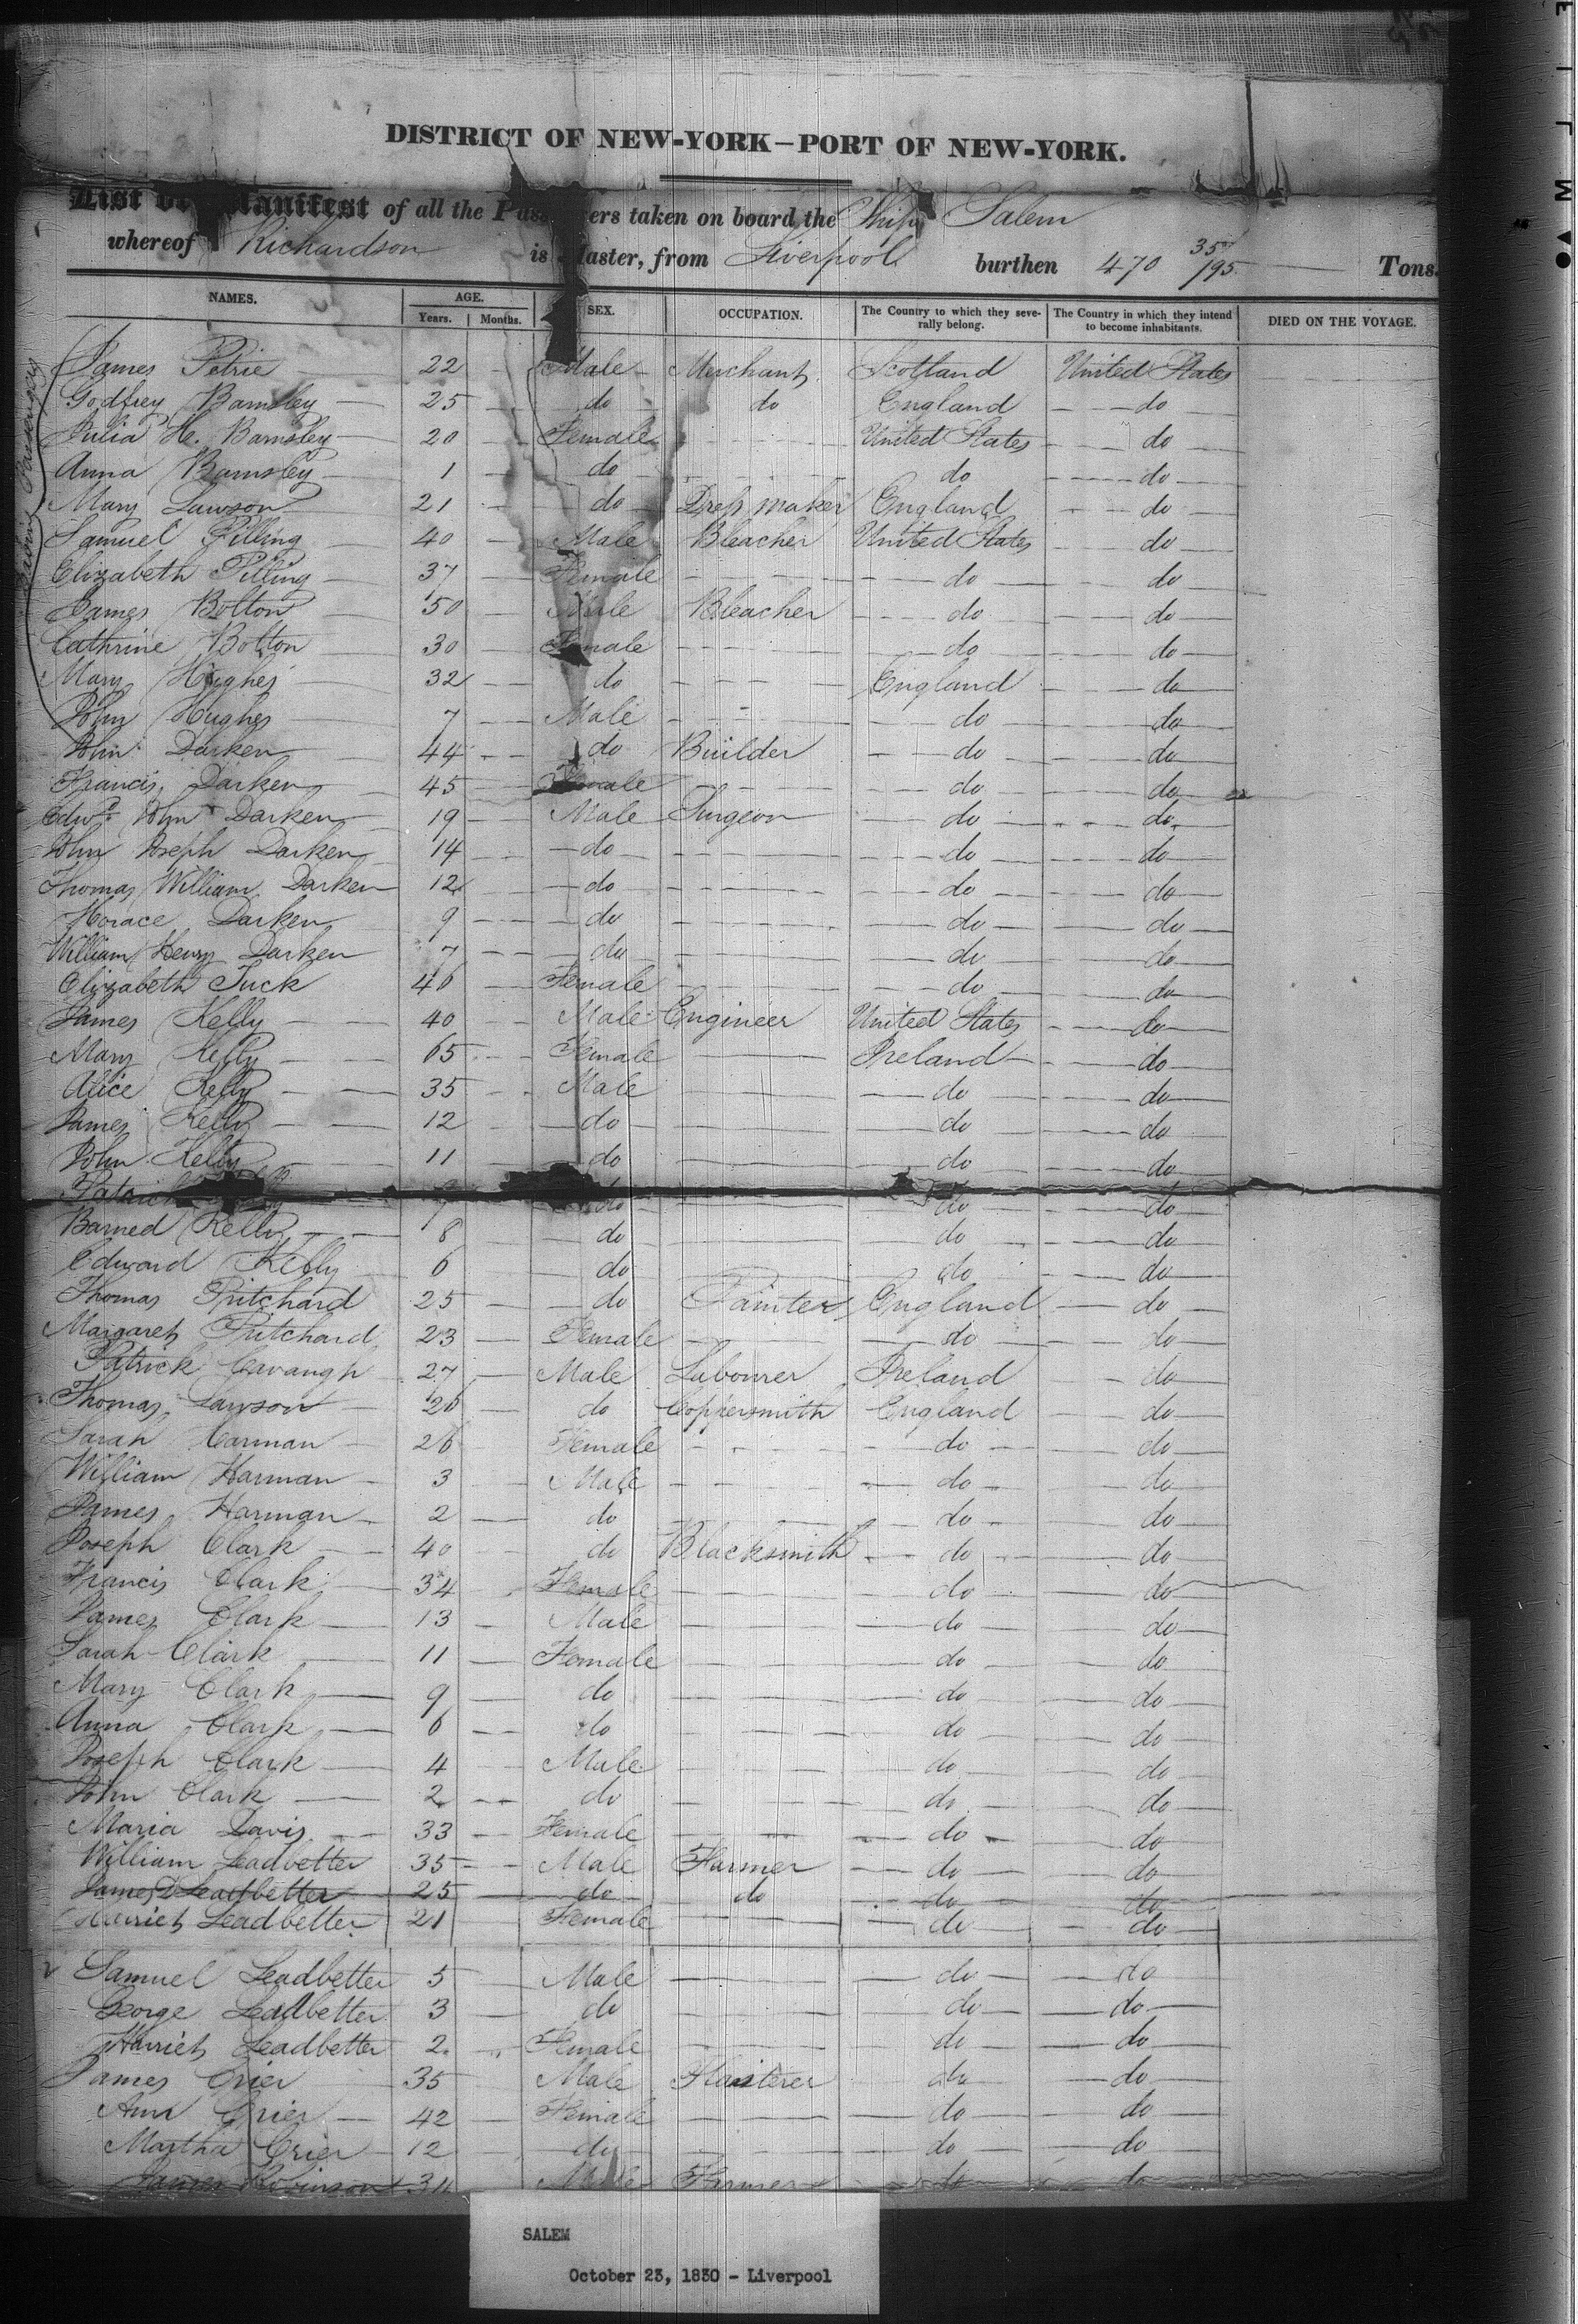 DISTRICT OF NEW-YORK—PORT OF NEW-YORK.
List or Manifest of all the Passengers taken on board the Ship Salem
whereof Richardson is Master, from Liverpool burthen 470 35/95 Tons.
NAMES. AGE. Years. Months. SEX. OCCUPATION. The Country to which they severally belong. The Country in which they intend to become inhabitants. DIED ON THE VOYAGE.
James Petrie 22 Male Merchant Scotland United States
Godfrey Barnsley 25 do do England do
Julia H. Barnsley 20 Female United States do
Anna Barnsley 1 do do do
Mary Lawson 21 do Dress maker England do
Samuel Pilling 40 Male Bleacher United States do
Elizabeth Pilling 37 Female do do
James Bolton 50 Male Bleacher do do
Cathrine Bolton 30 Female do do
Mary Hughes 32 do England do
John Hughes 7 Male do do
John Darken 44 do Builder do do
Francis Darken 45 Female do do
Edwd John Darken 19 Male Surgeon do do
John Joseph Darken 14 do do do
Thomas William Darken 12 do do do
Horace Darken 9 do do do
William Henry Darken 7 do do do
Elizabeth Tuck 46 Female do do
James Kelly 40 Male Engineer United States do
Mary Kelly 65 Female Ireland do
Alice Kelly 35 Male do do
James Kelly 12 do do do
John Kelly 11 do do do
Patrick do do do
Barned Kelly 8 do do do
Edward Kelly 6 do do do
Thomas Pritchard 25 do Painter England do
Margaret Pritchard 23 Female do do
Patrick Cavaugh 27 Male Labourer Ireland do
Thomas Lawson 26 do Coppersmith England do
Sarah Harman 26 Female do do
William Harman 3 Male do do
James Harman 2 do do do
Joseph Clark 40 do Blacksmith do do
Francis Clark 34 Female do do
James Clark 13 Male do do
Sarah Clark 11 Female do do
Mary Clark 9 do do do
Anna Clark 6 do do do
Joseph Clark 4 Male do do
John Clark 2 do do do
Maria Davis 33 Female do do
William Leadbetter 35 Male Farmer do do
James Leadbetter 25 do do do do
Harriet Leadbetter 21 Female do do
Samuel Leadbetter 5 Male do do
George Leadbetter 3 do do do
Harriet Leadbetter 2 Female do do
James Crier 35 Male Plaisterer do do
Ann Crier 42 Female do do
Martha Crier 12 do do do
James Robinson Male Farmer do do
SALEM
October 23, 1830 - Liverpool